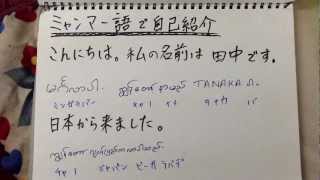 ミャンマー語で自己紹介
こんにちは。私の名前は 田中です。
မင်္ဂလာပါ။ ကျွန်တော် နာမည် TANAKA ပါ။
ミンガラバー チャノ ナメ タナカ バ
日本から来ました。
ကျွန်တော်
チャノ ジャパン